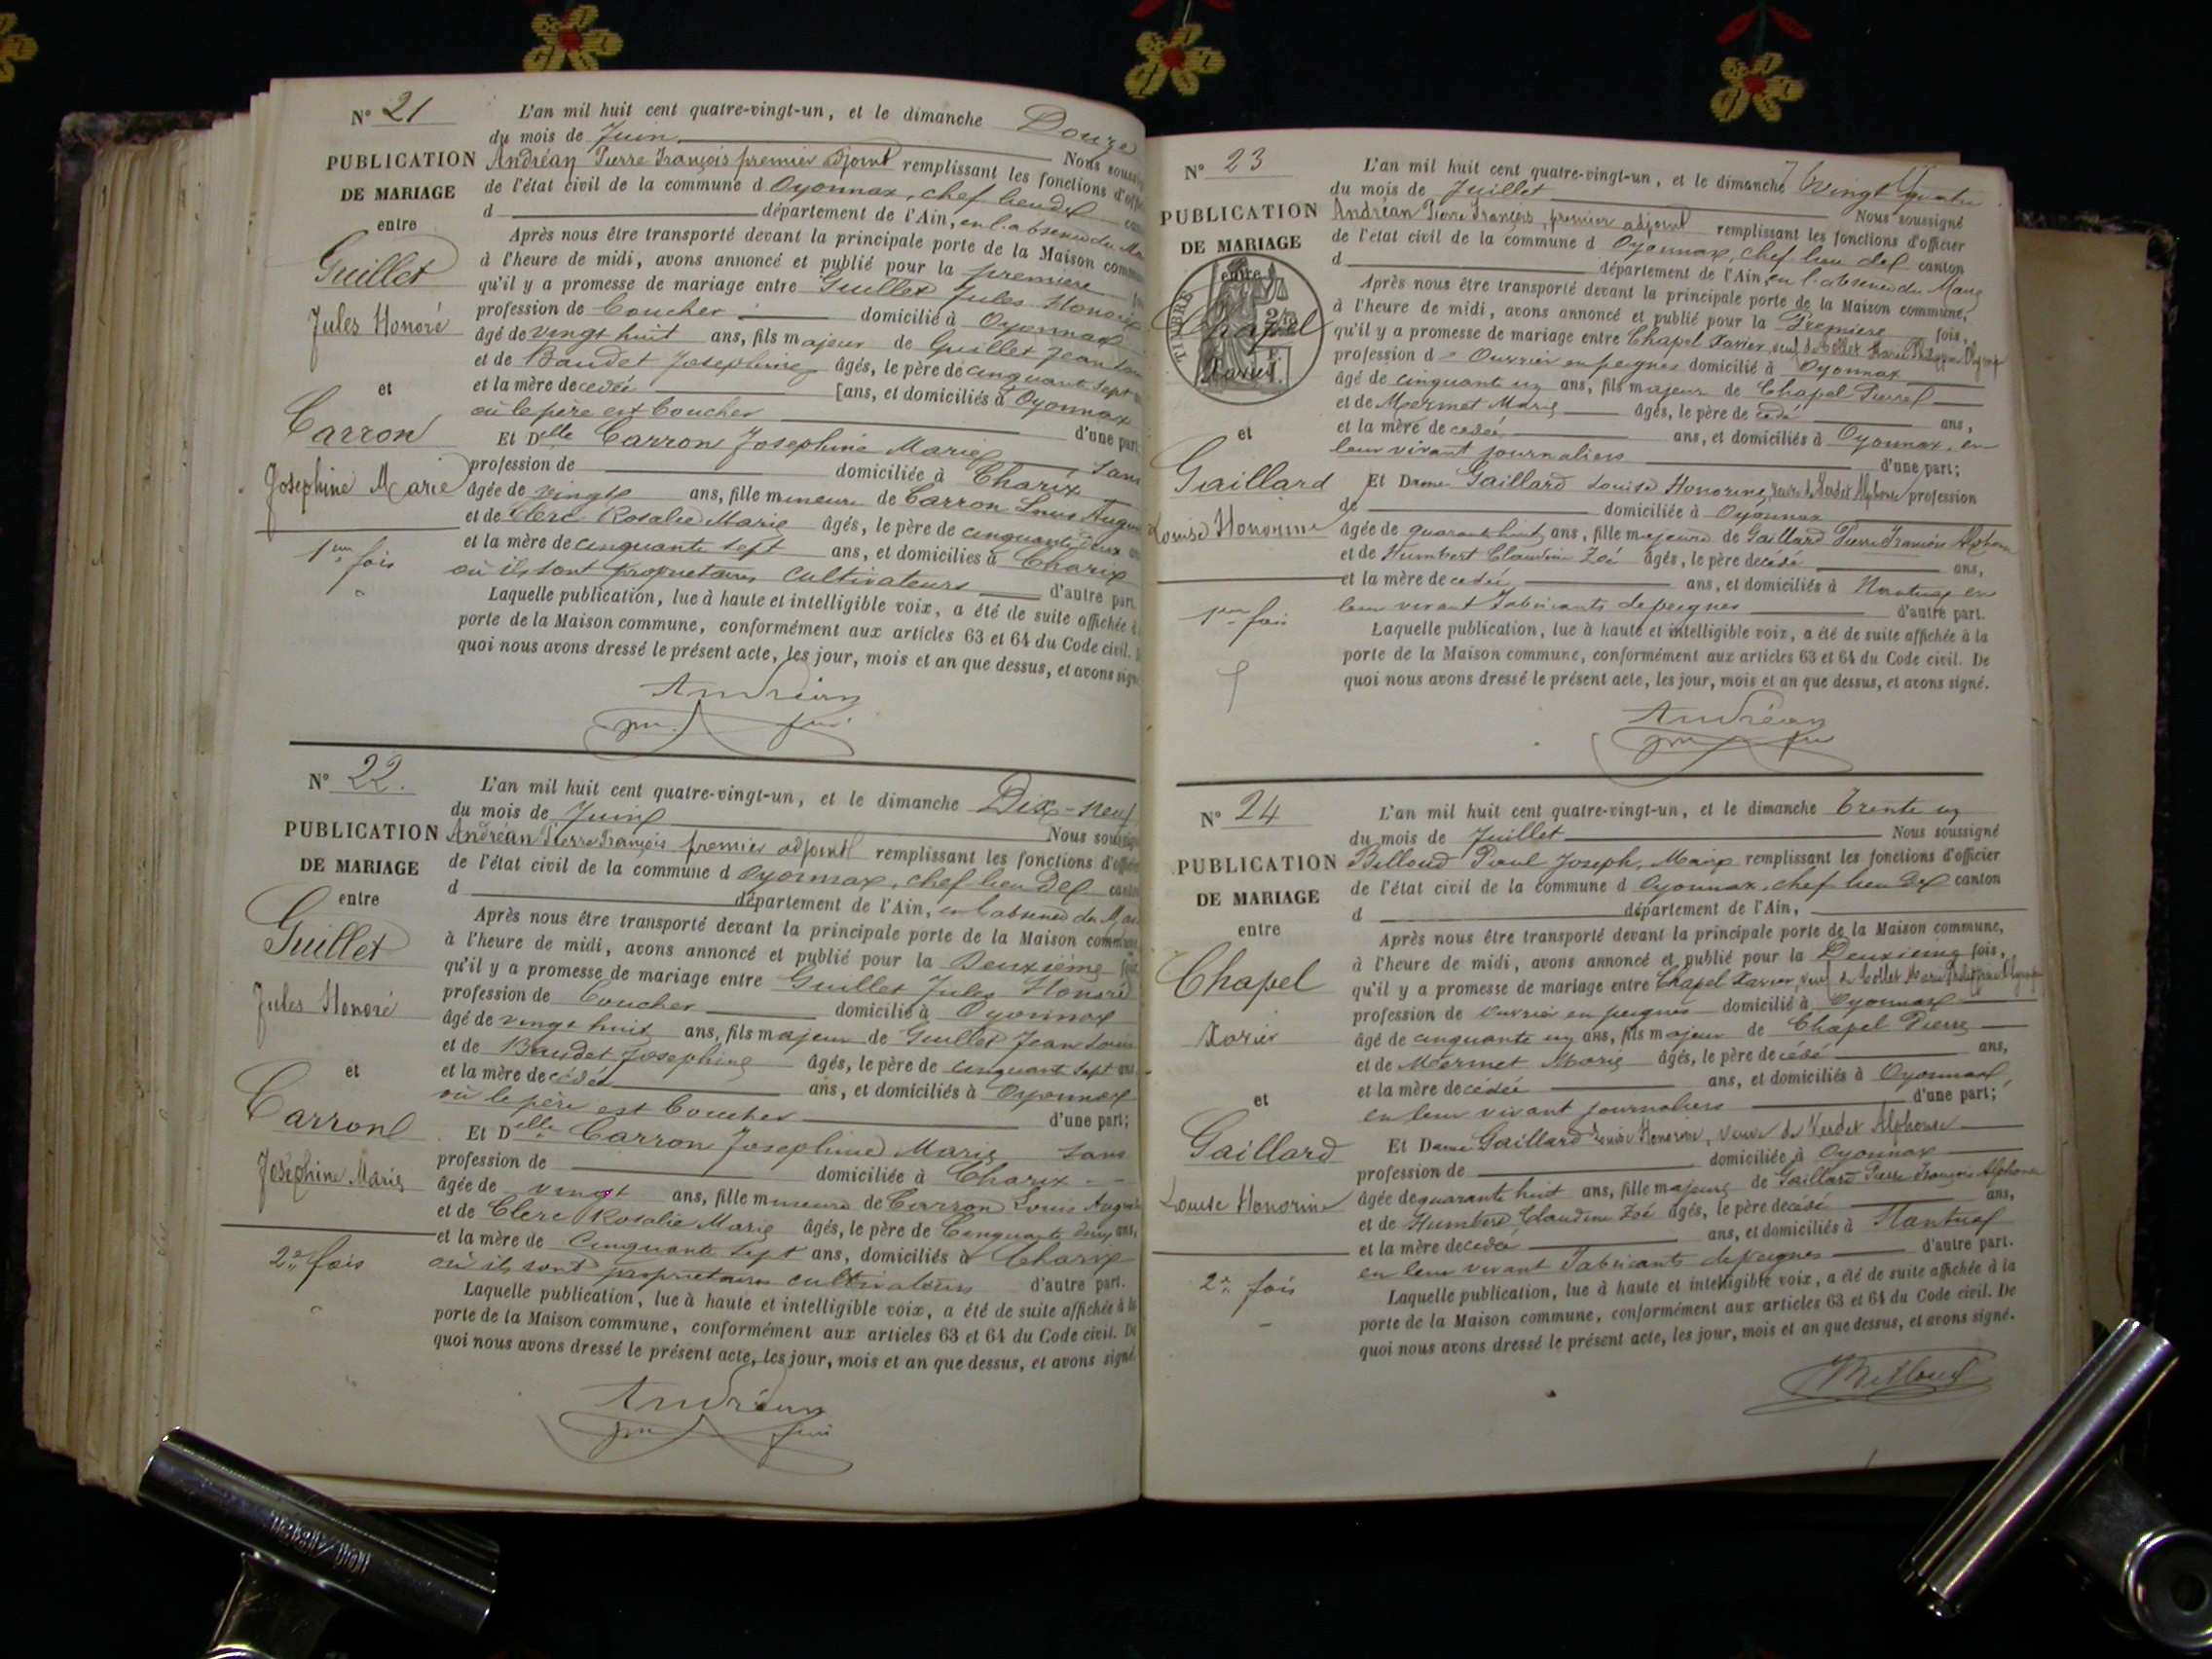 N° 21
PUBLICATION
DE MARIAGE
entre
Guillet
Jules Honoré
et
Carron
Josephine Marie
1ère fois
L'an mil huit cent quatre-vingt-un, et le dimanche Douze
du mois de Juin Nous
Andréan Pierre François premier adjoint remplissant les fonctions
de l'état civil de la commune d Oyonnax, chef lieu de
d département de l'Ain, en l'absence du
Après nous être transporté devant la principale porte de la Maison
à l'heure de midi, avons annoncé et publié pour la première
qu'il y a promesse de mariage entre Guillet Jules Honoré
profession de Boucher domicilié à Oyonnax
âgé de vingt huit ans, fils majeur de Guillet Jean
et de Baudet Josephine âgés, le père de cinquante sept
et la mère decedée [ans, et domiciliés à Oyonnax
où le père est Boucher d'une part
Et Delle Carron Josephine Marie sans
profession de domiciliée à Charix
âgée de vingt ans, fille mineure de Carron Louis
et de Clerc Rosalie Marie âgés, le père de cinquante deux
et la mère de cinquante sept ans, et domiciliés à Charix
où ils sont propriétaires cultivateurs d'autre part
Laquelle publication, lue à haute et intelligible voix, a été de suite affichée
porte de la Maison commune, conformément aux articles 63 et 64 du Code civil.
quoi nous avons dressé le présent acte, les jour, mois et an que dessus, et avons
Andréan
N° 22.
PUBLICATION
DE MARIAGE
entre
Guillet
Jules Honoré
et
Carron
Joséphine Marie
2e fois
L'an mil huit cent quatre-vingt-un, et le dimanche Dix-neuf
du mois de Juin Nous
Andréan Pierre François premier adjoint remplissant les fonctions d'officier
de l'état civil de la commune d Oyonnax, chef lieu de canton
d département de l'Ain, en l'absence du
Après nous être transporté devant la principale porte de la Maison commune,
à l'heure de midi, avons annoncé et publié pour la Deuxième
qu'il y a promesse de mariage entre Guillet Jules Honoré
profession de Boucher domicilié à Oyonnax
âgé de vingt huit ans, fils majeur de Guillet Jean Louis
et de Baudet Josephine âgés, le père de cinquante sept ans
et la mère decédée ans, et domiciliés à Oyonnax
où le père est Boucher d'une part;
Et Delle Carron Josephine Marie sans
profession de domiciliée à Charix
âgée de vingt ans, fille mineure de Carron Louis
et de Clerc Rosalie Marie âgés, le père de Cinquante deux ans,
et la mère de Cinquante sept ans, domiciliés à Charix
où ils sont propriétaires cultivateurs d'autre part.
Laquelle publication, lue à haute et intelligible voix, a été de suite affichée à la
porte de la Maison commune, conformément aux articles 63 et 64 du Code civil. De
quoi nous avons dressé le présent acte, les jour, mois et an que dessus, et avons signé.
Andréan
N° 23
PUBLICATION
DE MARIAGE
entre
TIMBRE
Chapel
Xavier
et
Gaillard
Louise Honorine
1ère fois
L'an mil huit cent quatre-vingt-un, et le dimanche Vingt quatre
du mois de Juillet Nous soussigné
Andréan Pierre François, premier adjoint remplissant les fonctions d'officier
de l'état civil de la commune d Oyonnax, chef lieu de canton
d département de l'Ain, en l'absence du Maire
Après nous être transporté devant la principale porte de la Maison commune,
à l'heure de midi, avons annoncé et publié pour la Première fois,
qu'il y a promesse de mariage entre Chapel Xavier, veuf de Collet Marie
profession d Ouvrier en peignes domicilié à Oyonnax
âgé de cinquante un ans, fils majeur de Chapel Pierre
et de Mermet Marie âgés, le père de cédé ans,
et la mère de cedée ans, et domiciliés à Oyonnax, en
leur vivant journaliers d'une part;
Et Dame Gaillard Louise Honorine, veuve de Verdet Alphonse profession
de domiciliée à Oyonnax
âgée de quarante huit ans, fille majeure de Gaillard Pierre François Alphonse
et de Humbert Claudine Zoé âgés, le père decédé ans,
et la mère de cedée ans, et domiciliés à Nantua en
leur vivant fabricants de peignes d'autre part.
Laquelle publication, lue à haute et intelligible voix, a été de suite affichée à la
porte de la Maison commune, conformément aux articles 63 et 64 du Code civil. De
quoi nous avons dressé le présent acte, les jour, mois et an que dessus, et avons signé.
Andréan
N° 24
PUBLICATION
DE MARIAGE
entre
Chapel
Xavier
et
Gaillard
Louise Honorine
2e fois
L'an mil huit cent quatre-vingt-un, et le dimanche Trente un
du mois de Juillet Nous soussigné
Billoud Paul Joseph, Maire remplissant les fonctions d'officier
de l'état civil de la commune d Oyonnax, chef lieu de canton
d département de l'Ain,
Après nous être transporté devant la principale porte de la Maison commune,
à l'heure de midi, avons annoncé et publié pour la Deuxième fois,
qu'il y a promesse de mariage entre Chapel Xavier veuf de Collet Marie
profession de Ouvrier en peignes domicilié à Oyonnax
âgé de cinquante un ans, fils majeur de Chapel Pierre
et de Mermet Marie âgés, le père de cédé ans,
et la mère decédée ans, et domiciliés à Oyonnax
en leur vivant journaliers d'une part;
Et Dame Gaillard Louise Honorine, veuve de Verdet Alphonse
profession de domiciliée à Oyonnax
âgée de quarante huit ans, fille majeure de Gaillard Pierre François Alphonse
et de Humbert Claudine Zoé âgés, le père decédé ans,
et la mère decedée ans, et domiciliés à Nantua
en leur vivant fabricants de peignes d'autre part.
Laquelle publication, lue à haute et intelligible voix, a été de suite affichée à la
porte de la Maison commune, conformément aux articles 63 et 64 du Code civil. De
quoi nous avons dressé le présent acte, les jour, mois et an que dessus, et avons signé.
Billoud